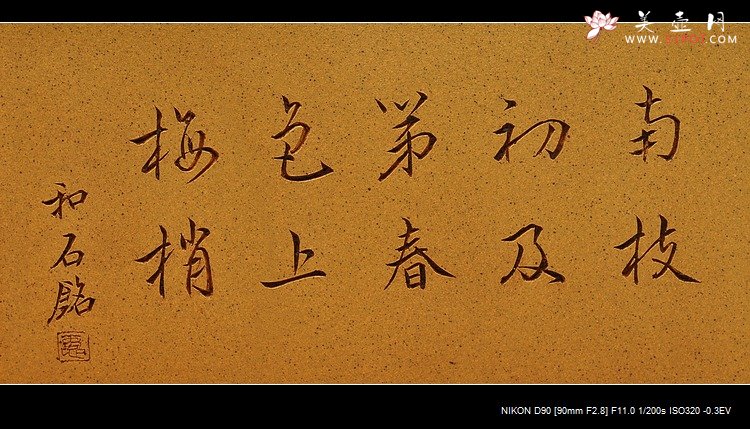 南枝
初及
第春
色上
梅梢
和石銘
美壶网
NIKON D90 [90mm F2.8] F11.0 1/200s ISO320 -0.3EV